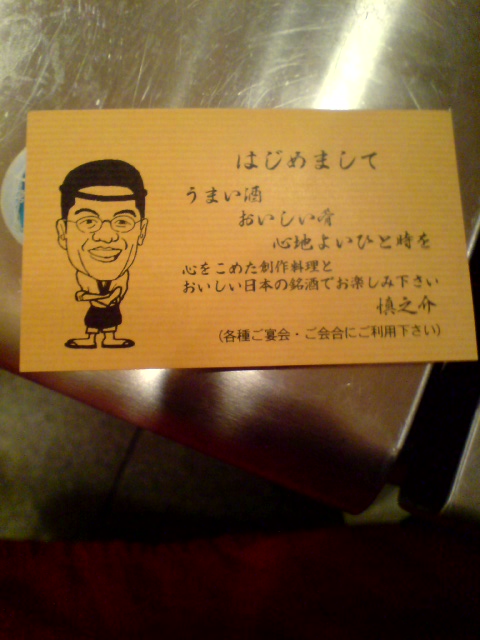 はじめまして
うまい酒
おいしい肴
心地よいひと時を
心をこめた創作料理と
おいしい日本の銘酒でお楽しみ下さい
慎之介
（各種ご宴会・ご会合にご利用下さい）